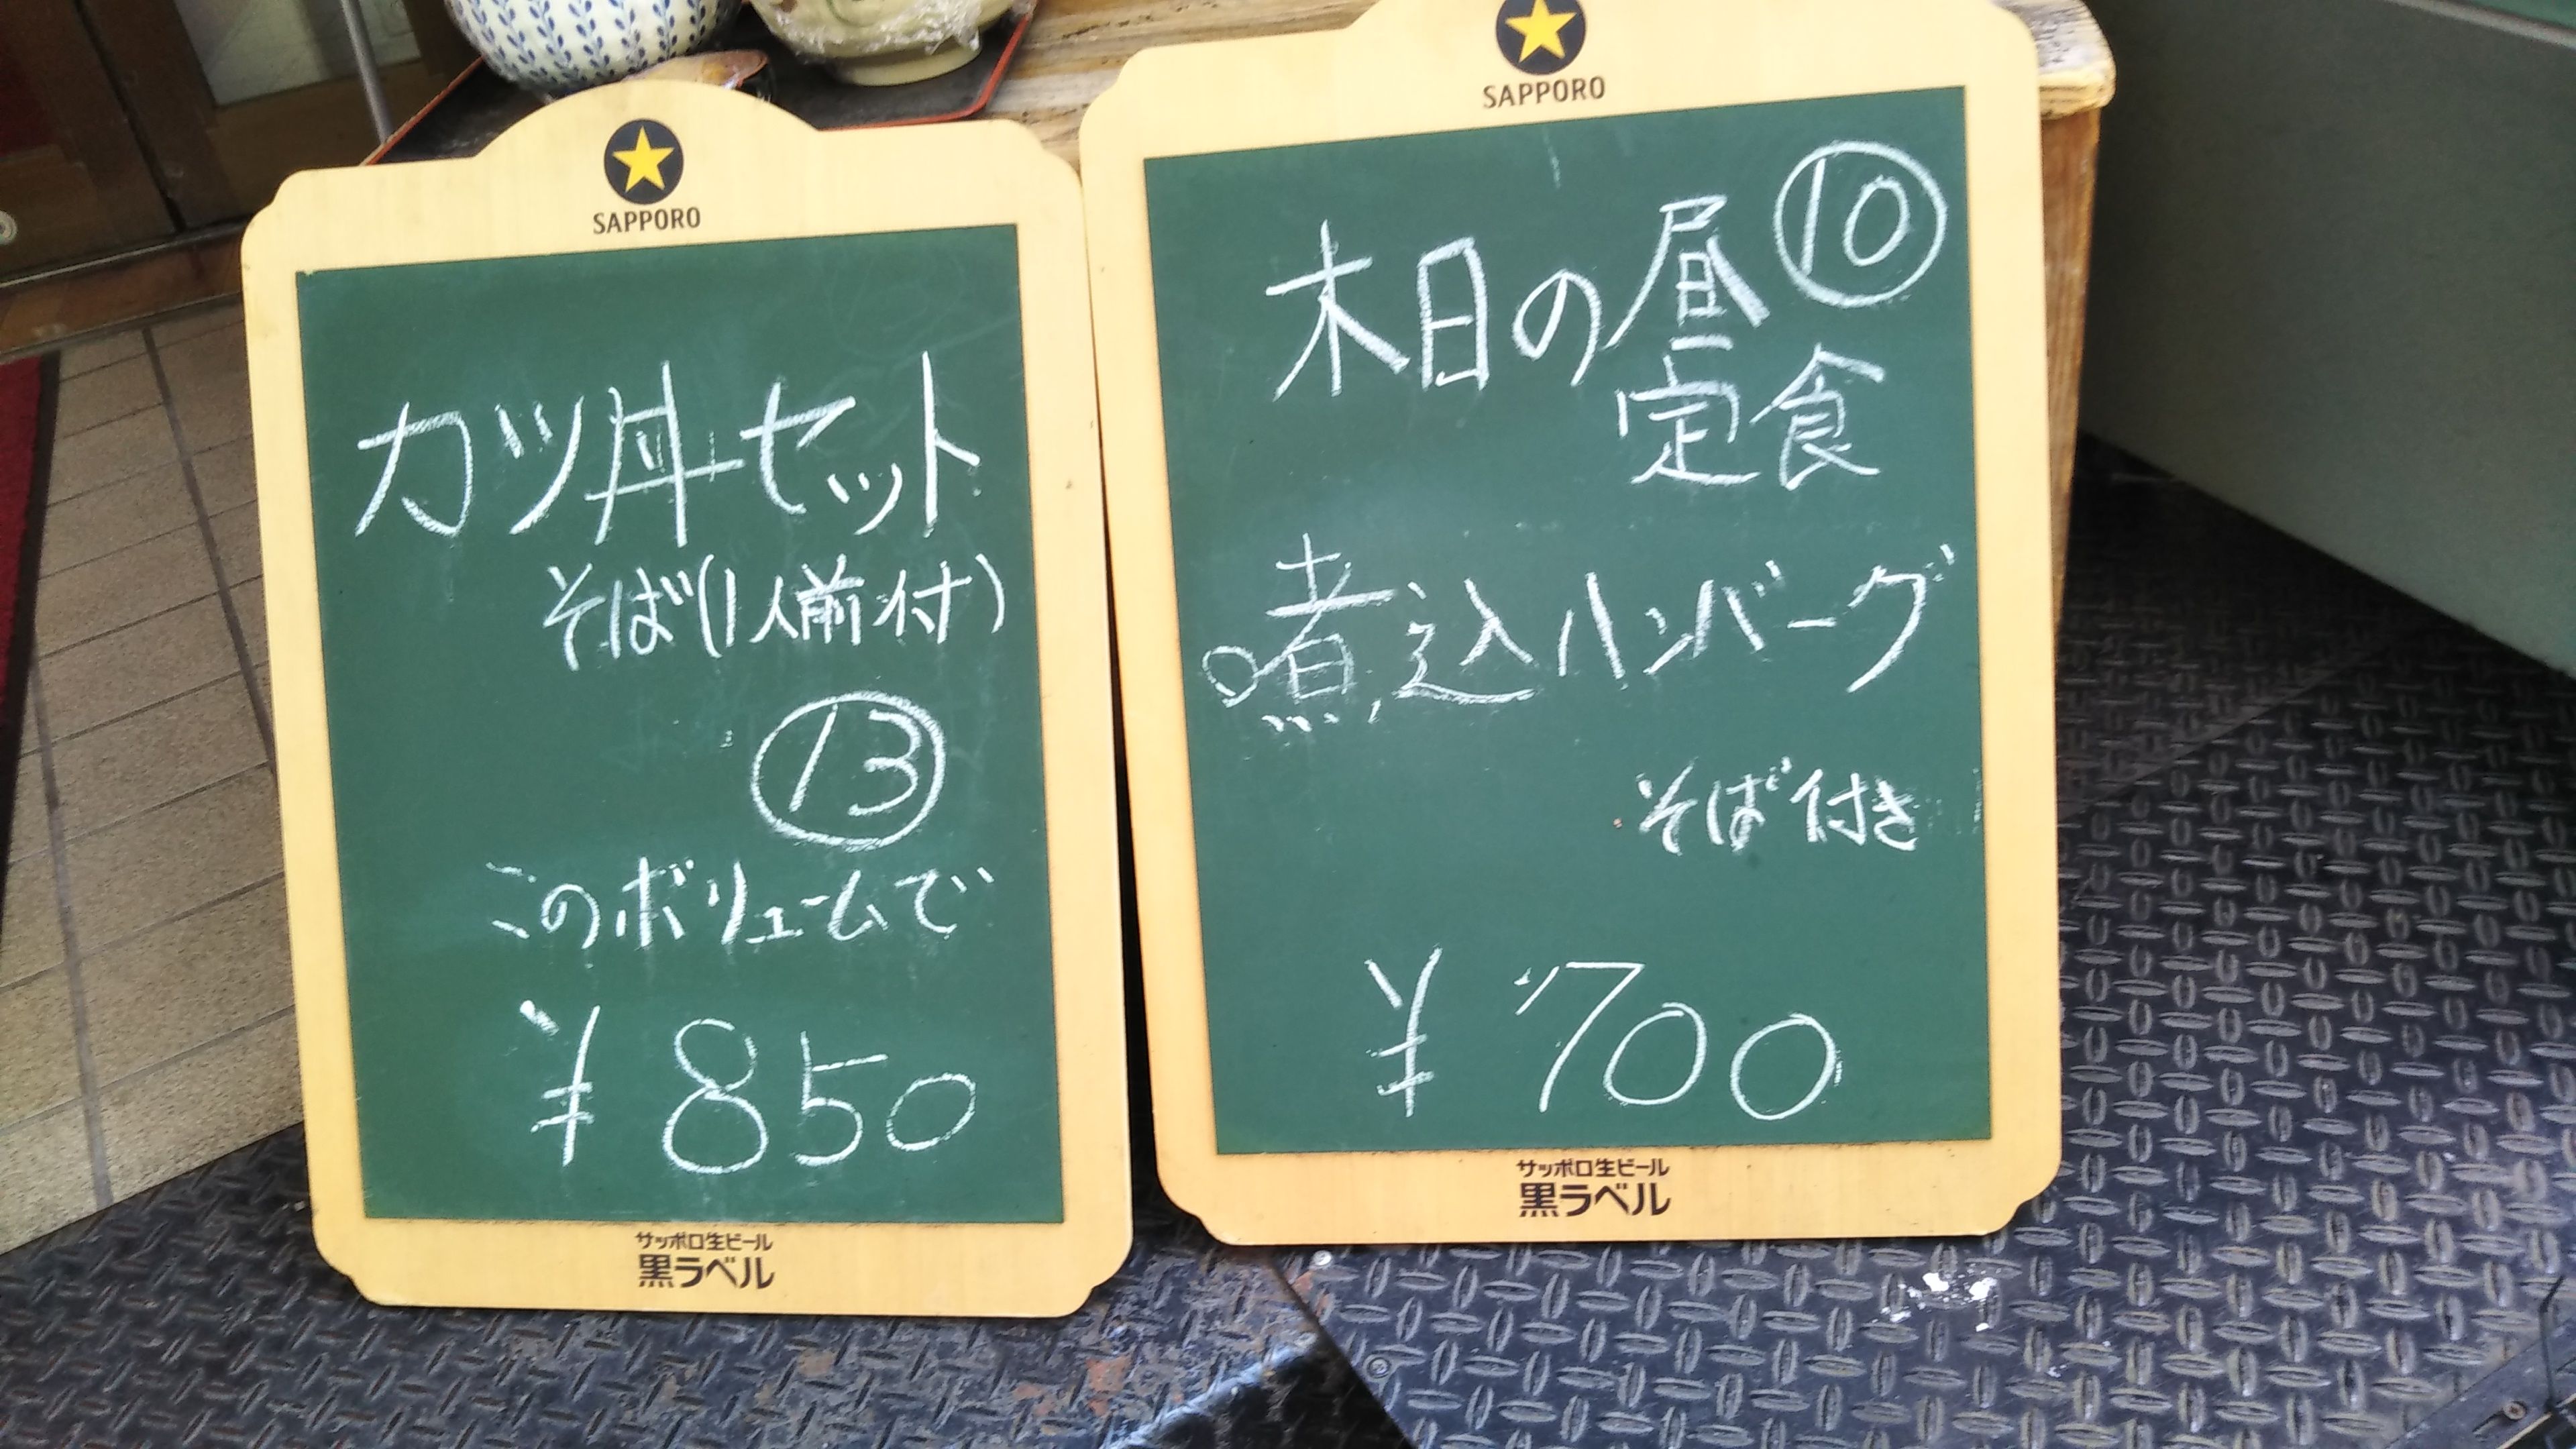 SAPPORO
カツ丼セット
そば(1人前付)
⑬
このボリュームで
¥850
サッポロ生ビール
黒ラベル
SAPPORO
⑩
本日の昼
定食
○煮込ハンバーグ
そば付き
¥700
サッポロ生ビール
黒ラベル